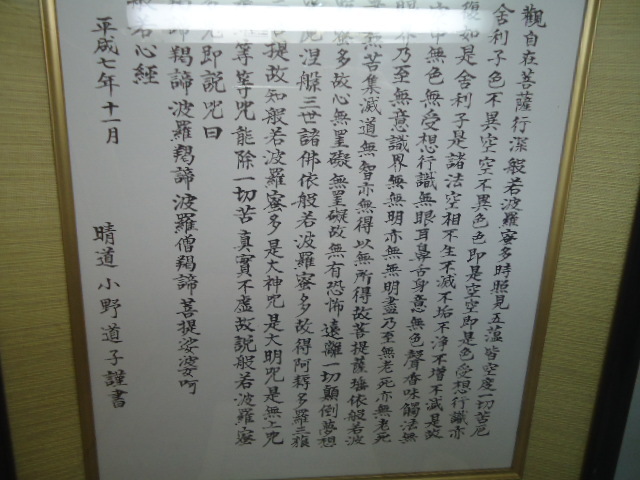 觀自在菩薩行深般若波羅蜜多時照見五蘊皆空度一切苦厄
舍利子色不異空空不異色色即是空空即是色受想行識亦
復如是舍利子是諸法空相不生不滅不垢不浄不増不減是故
中無色無受想行識無眼耳鼻舌身意無色聲香味觸法無
眼界乃至無意識界無無明亦無無明盡乃至無老死亦無老死
無苦集滅道無智亦無得以無所得故菩提薩埵依般若波
蜜多故心無罣礙無罣礙故無有恐怖遠離一切顛倒夢想
涅槃三世諸佛依般若波羅蜜多故得阿耨多羅三藐
提故知般若波羅蜜多是大神咒是大明咒是無上咒
等等咒能除一切苦真實不虛故説般若波羅蜜
咒即説咒曰
諦羯諦波羅羯諦波羅僧羯諦菩提娑婆呵
般若心經
平成七年十一月 晴道 小野道子謹書